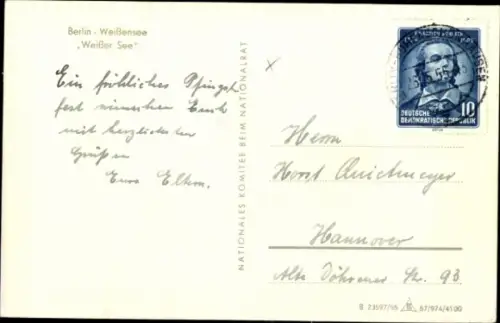 Berlin - Weißensee
„Weißer See"
Ein fröhliches Pfingst
fest wünschen Euch
mit herzlichsten
Grüßen
Eure Eltern.
NATIONALES KOMITEE BEIM NATIONALRAT
DEUTSCHE 10
DEMOKRATISCHE REPUBLIK
Herrn
Horst Quietmeyer
Hannover
Alte Döhrener Str. 93
67/974/4100